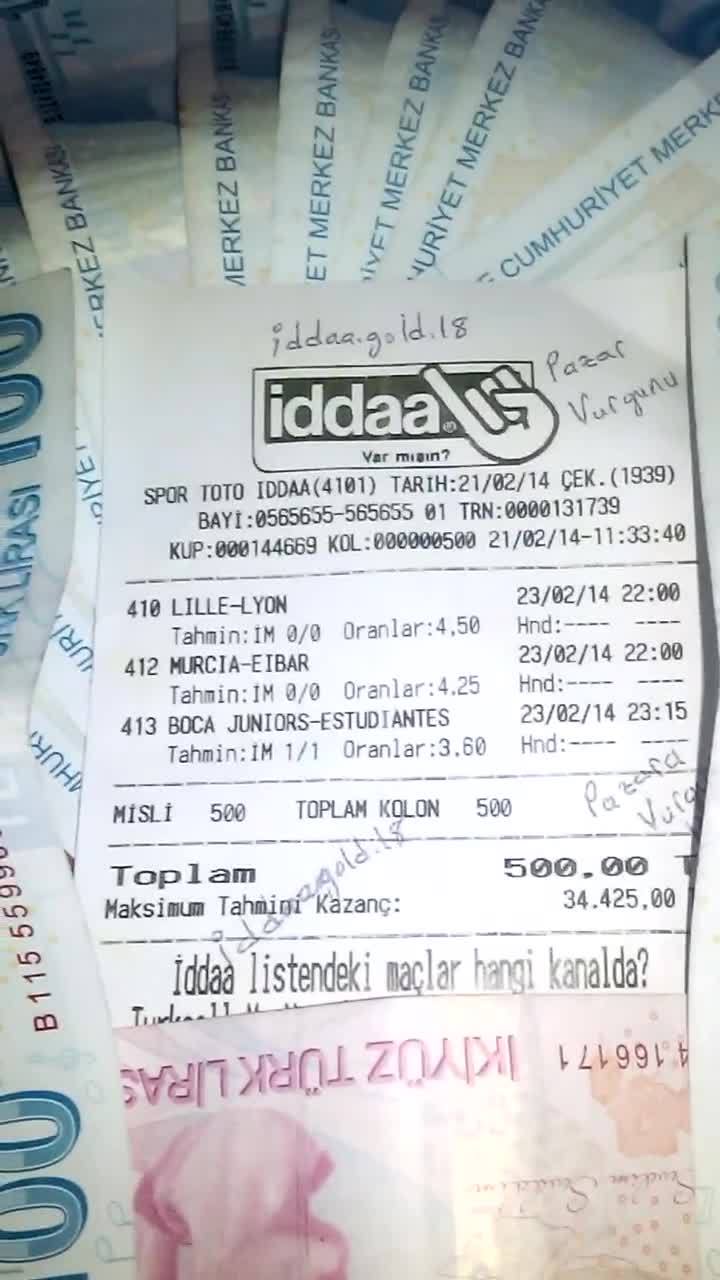 MERKEZ BANKASI
MERKEZ BANKAS
MERKEZ BANKASI
MERKEZ BANKASI
CUMHURİYET MERK
100
LİRASI
iddaa.gold.18
Pazar
Vurgunu
iddaa
Var mısın?
SPOR TOTO IDDAA(4101) TARIH:21/02/14 ÇEK.(1939)
BAYİ:0565655-565655 01 TRN:0000131739
KUP:000144669 KOL:000000500 21/02/14-11:33:40
410 LILLE-LYON 23/02/14 22:00
Tahmin:İM 0/0 Oranlar:4,50 Hnd:---- ----
412 MURCIA-EIBAR 23/02/14 22:00
Tahmin:İM 0/0 Oranlar:4,25 Hnd:---- ----
413 BOCA JUNIORS-ESTUDIANTES 23/02/14 23:15
Tahmin:İM 1/1 Oranlar:3,60 Hnd:---- ----
MİSLİ 500 TOPLAM KOLON 500
Pazara
Vurgu
Toplam 500,00 T
iddaa.gold.18
Maksimum Tahmini Kazanç: 34.425,00
İddaa listendeki maçlar hangi kanalda?
B115 5599
İKİYÜZ TÜRK LİRAS
166171